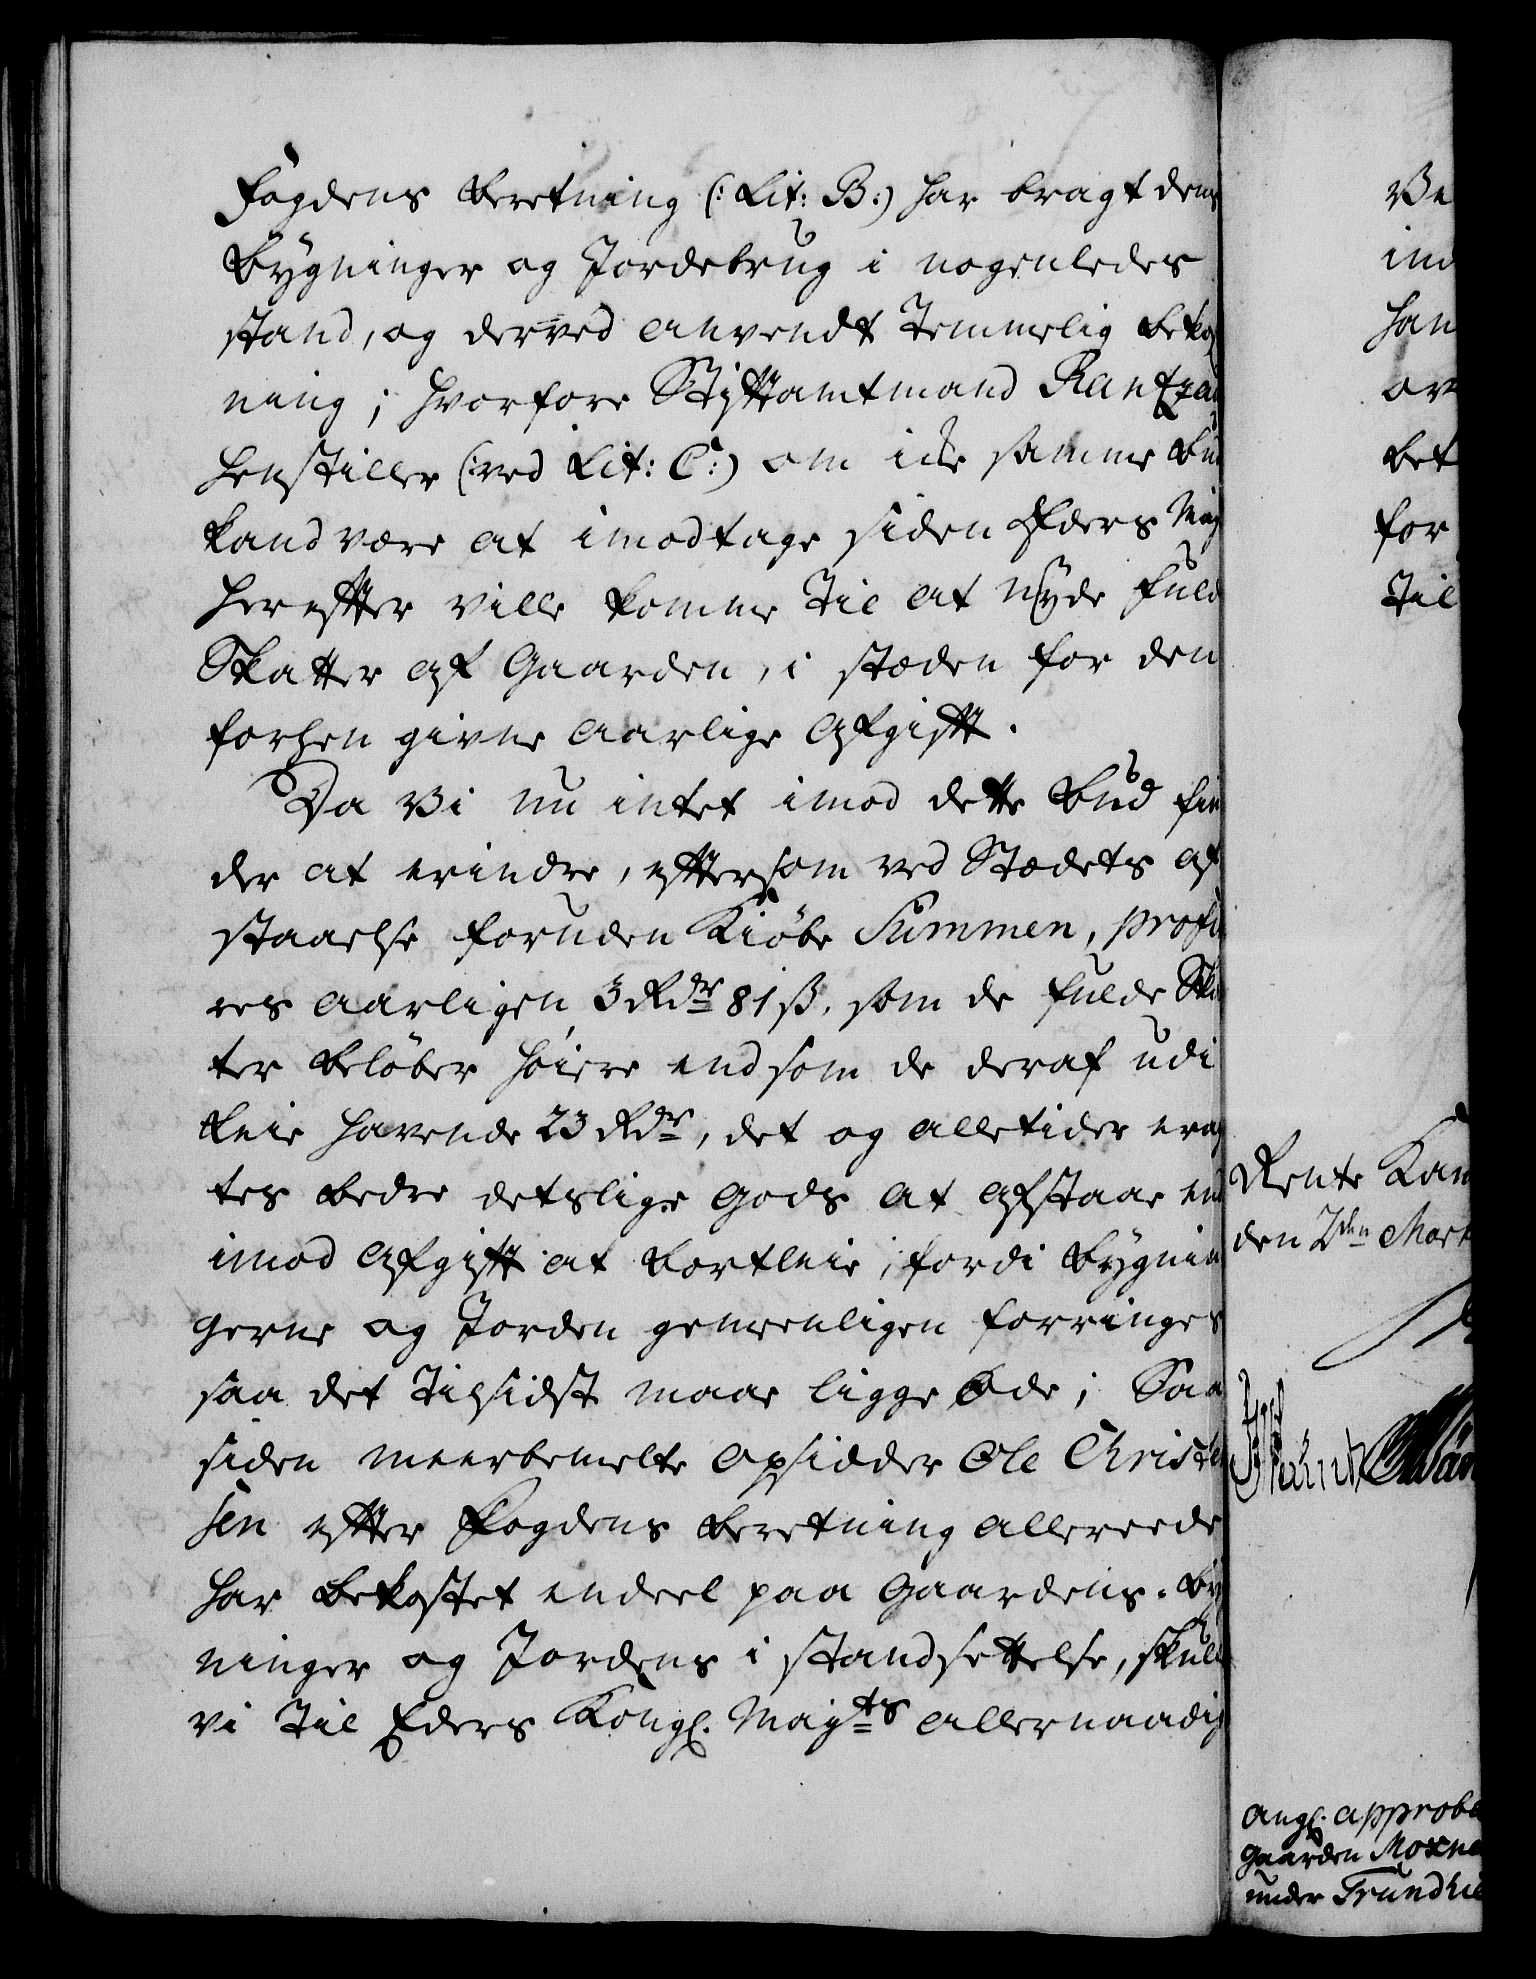 Fogdens Beretning (: Lit: B:) har bragt dens
Bÿgninger og Jordebrug i nogenledes
stand, og derved anvendt temmelig Bekos
ning; hvorfore Stiftamtmand Rantzau
henstiller (:ved Lit: C:) om icke samme Bud
kand være at imodtage siden Eders Maÿ
herefter ville komme til at nÿde fulde
Skatter af Gaarden, i stæden for den
forhen givne aarlige Afgift.
Da Vi nu intet imod dette Bud fin
der at erindre, eftersom ved Stædets af
staaelse foruden Kiøbe Summen, profite
res aarligen 3 Rdr 81 ß, som de fulde Skat
ter beløber høiere end som de deraf udi
Leie havende 23 Rdr, det og alletider erag
tes bedre detslige Gods at afstaae end
imod Afgift at bortleie, fordi Bygnin
gerne og Jorden gemeenligen forringes
saa det tilsidst maae ligge Øde; Saa
siden meerbemelte Opsidder Ole Christen
sen efter Fogdens Beretning allereede
har bekostet endeel paa Gaardens Bÿg
ninger og Jordens i standsettelse, skulle
vi til Eders Kongl. Maÿts allernaadig
Ve
ind
han
or
bet
for
til
Rente Kam
den 7den Mart
angl. approbe
Gaarden Moxne
under Trundhie